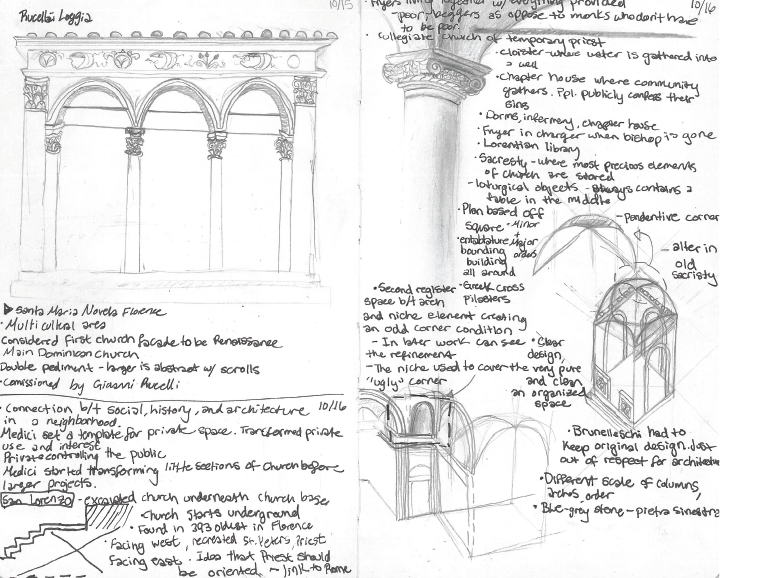 Rucellai Loggia
10/15
▶ Santa Maria Novela Florence
• Multi cultral area
Considered first church facade to be Renaissance
Main Dominican church
Double pediment - larger is abstract w/ scrolls
• Comissioned by Giaanni Rucelli
• Connection b/t social, history, and architecture 10/16
in a neighborhood.
Medici set a template for private space. Transformed private
use and interest
Private controlling the public
Medici started transforming little sections of Church before
larger projects.
San Lorenzo - excavated church underneath church base
church starts underground
• Found in 393 oldest in Florence
• Facing west, recreated St. Peters, Priest
facing east. Idea that Priest should
be oriented - link to Rome
Fryers living together w/ everything provided 10/16
- poor-beggers as oppose to monks who don't have
to be poor.
• Collegiate church of temporary priest
• cloister - where water is gathered into
a well
• chapter house where community
gathers. ppl. publicly confess their
sins
• Dorms, infermery, chapter house
• Fryer in charger when bishop is gone
• Lorentian library
• Sacresty - where most precious elements
of church are stored
- loturgical objects - always contains a
table in the middle
• Plan based off
square
• Minor
+
Major
orders
• entablature
bounding
building
all around
• Greek cross
Pilasters
- pendentive corner
- alter in
old
sacristy
• Second register
space b/t arch
and niche element creating
an odd corner condition
- In later work can see
the refinement
- The niche used to cover the
"ugly" corner
• Clear
design,
very pure
and clean
an organized
space
• Brunelleschi had to
keep original design. Just
out of respect for architecture
• Different scale of columns,
arches, order
• Blue-grey stone - pietra sinestra